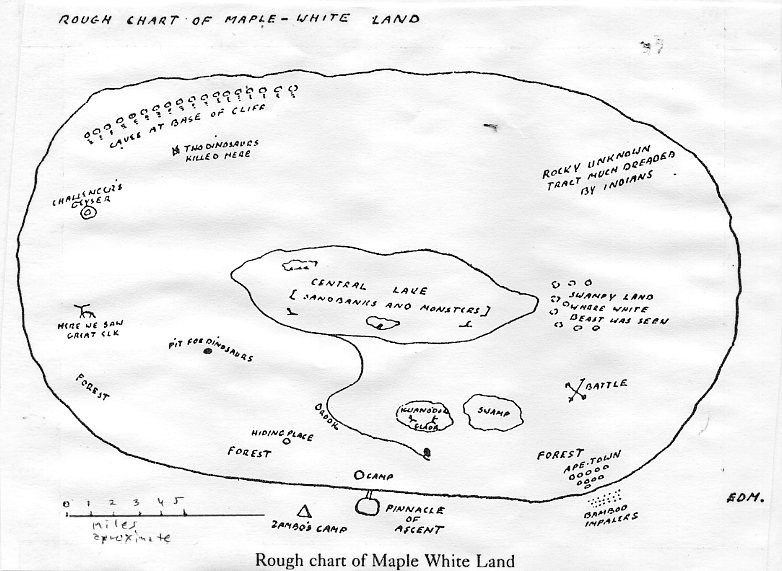 ROUGH CHART OF MAPLE-WHITE LAND
CAVES AT BASE OF CLIFF
TWO DINOSAURS
KILLED HERE
ROCKY UNKNOWN
TRACT MUCH DREADED
BY INDIANS
CHALLENGER'S
GEYSER
CENTRAL LAKE
[SANDBANKS AND MONSTERS]
SWAMPY LAND
WHERE WHITE
BEAST WAS SEEN
HERE WE SAW
GREAT ELK
PIT FOR DINOSAURS
FOREST
BATTLE
BROOK
GLADE
SWAMP
HIDING PLACE
FOREST
FOREST
APE-TOWN
CAMP
0 1 2 3 4 5
miles
aproximate
ZAMBO'S CAMP
PINNACLE
OF
ASCENT
BAMBOO
IMPALERS
EDM.
Rough chart of Maple White Land